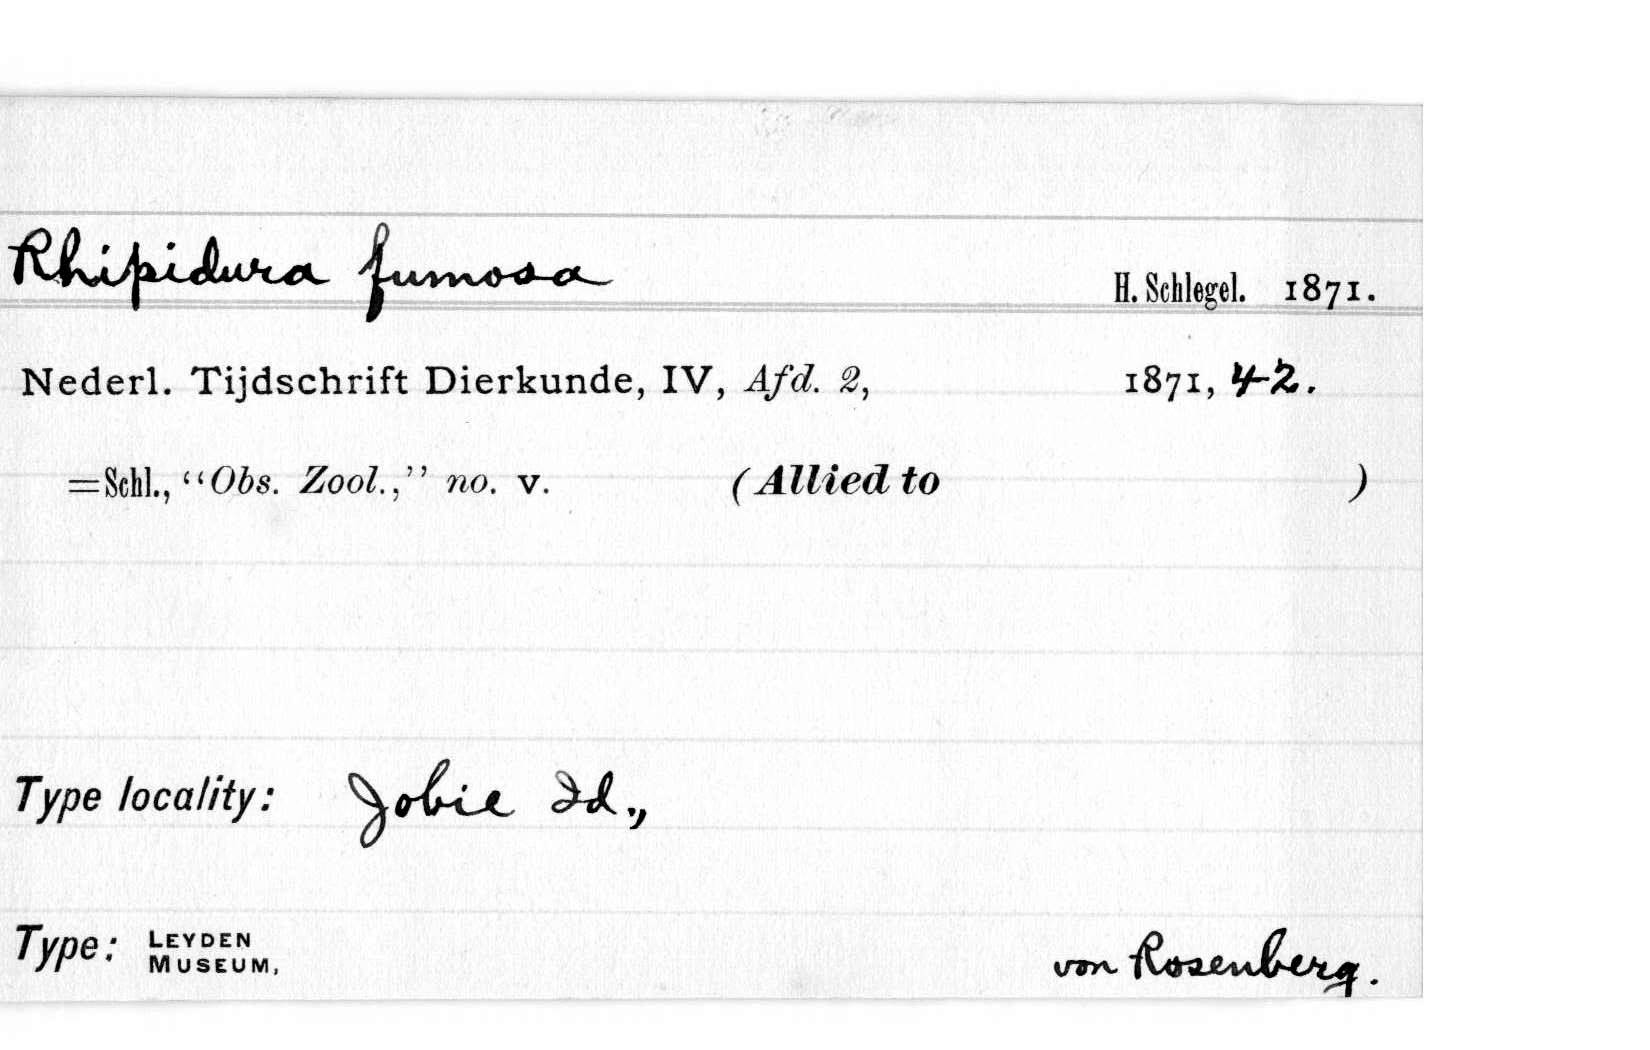 Rhipidura fumosa H. Schlegel. 1871.
Nederl. Tijdschrift Dierkunde, IV, Afd. 2, 1871, 42.
=Schl., “Obs. Zool.,” no. v. (Allied to )
Type locality: Jobie Id.,
Type: LEYDEN
MUSEUM,
von Rosenberg.